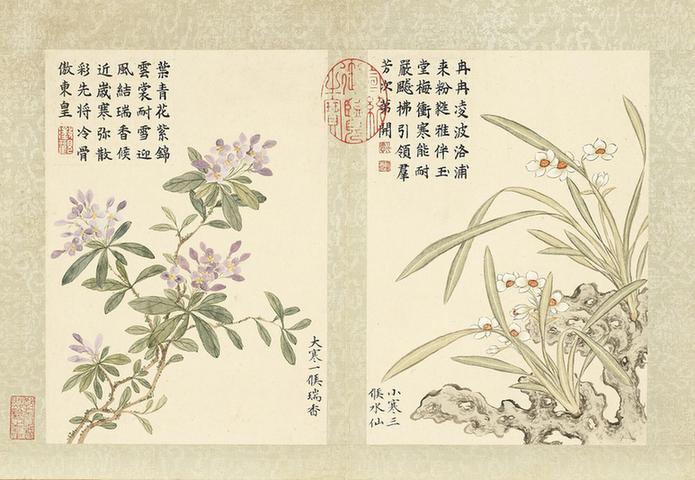 冉冉凌波洛浦
來粉雅伴玉
堂梅衝寒能耐
嚴飈拂引領羣
芳次第開
小寒三
候水仙
葉青花紫錦
雲裳耐雪迎
風結瑞香候
近歲寒弥散
彩先將冷骨
傲東皇
大寒一候瑞香